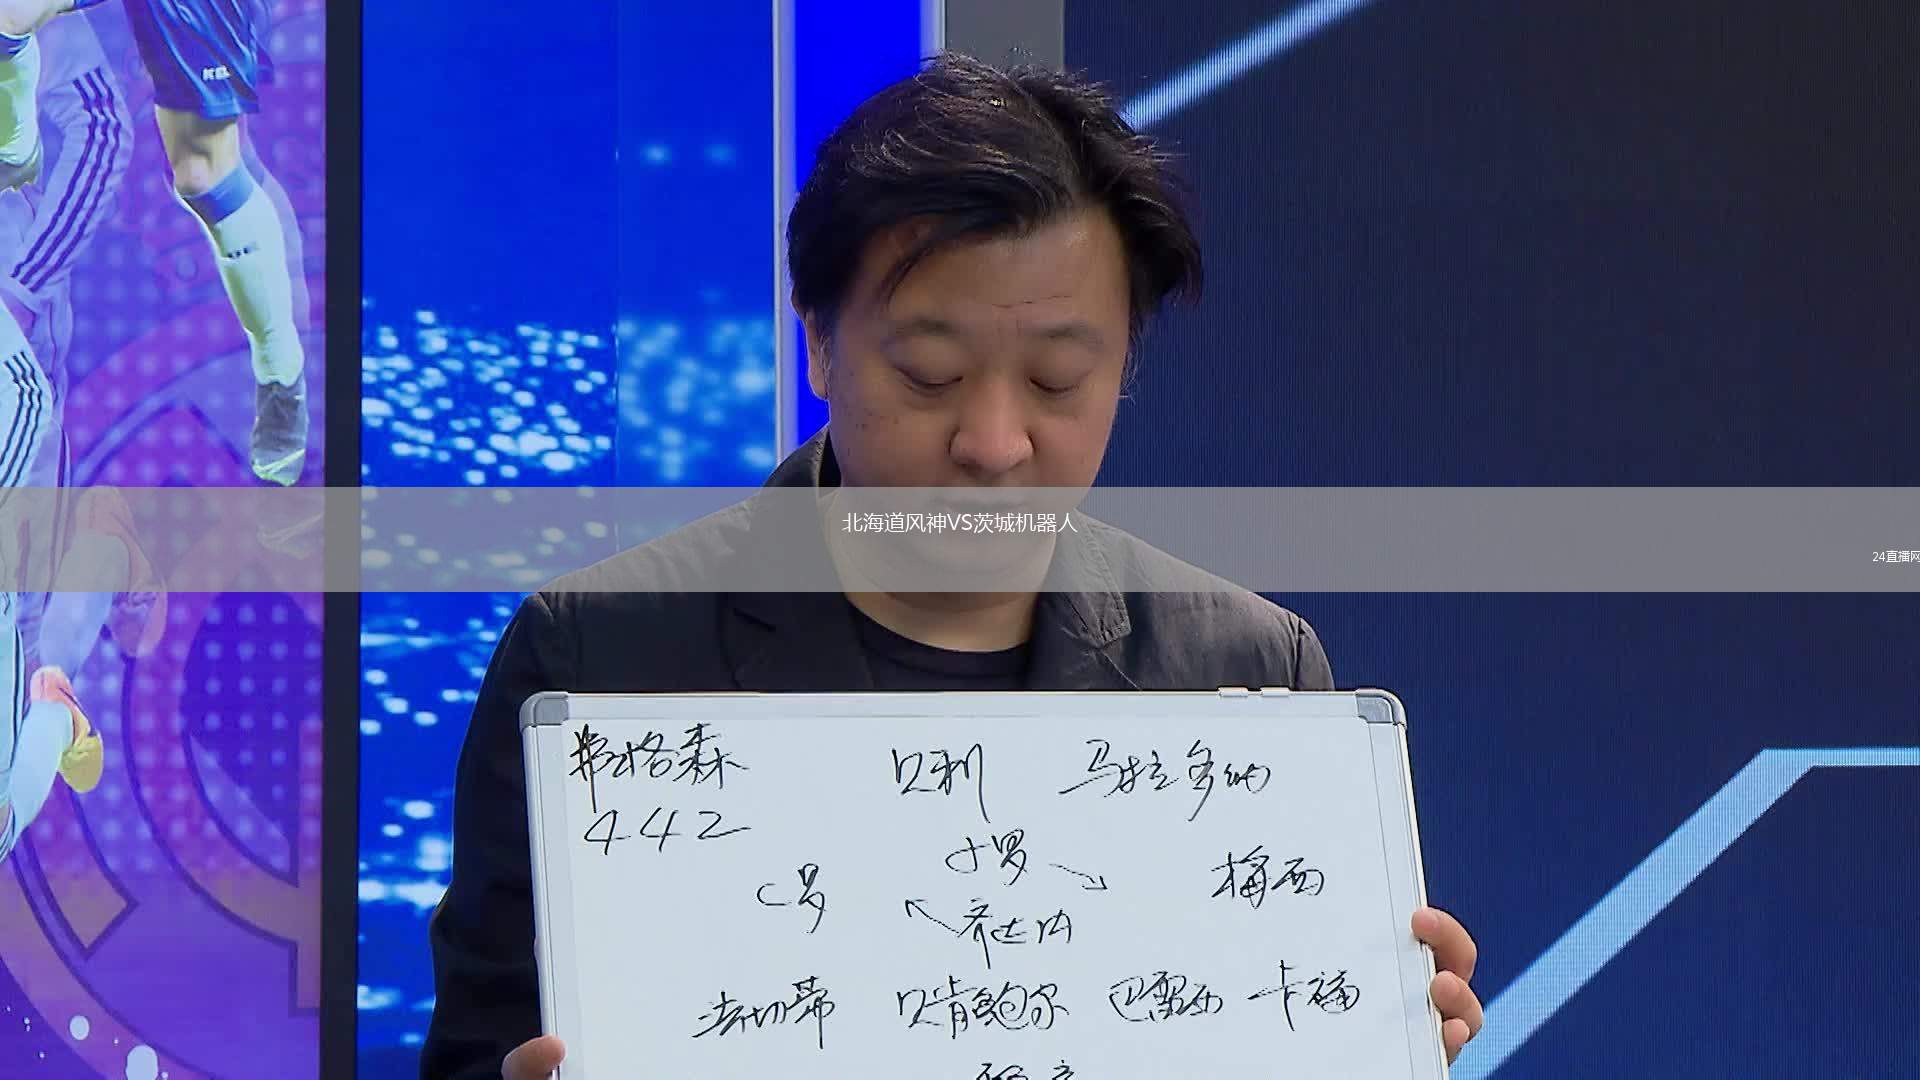 北海道风神VS茨城机器人
24直播网
弗格森 贝利 马拉多纳
442
小罗
C罗 梅西
齐达内
法切蒂 贝肯鲍尔 巴雷西 卡福